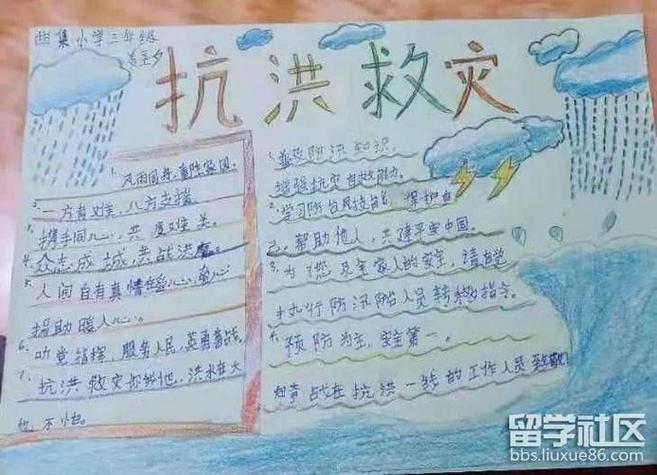 集小学三年级
抗洪救灾
1. 风雨同舟,重阵家国。
2. 一方有难,八方支援。
3. 携手同心,共度难关。
4. 众志成城,共战洪魔。
5. 人间自有真情在,
援助暖人心。
6. 听党指挥,服务人民,英勇奋战。
7. 抗洪救灾你我他,洪水在大
也不怕。
1. 普及防汛知识,
增强抗灾自救能力。
2. 学习防台风技能,保护自
己,帮助他人,共建平安中国。
3. 为了您及全家人的安全,请自觉
执行防汛防台人员转移指令。
4. 预防为主,安全第一。
战在抗洪一线的工作人员
留学社区
bbs.liuxue86.com